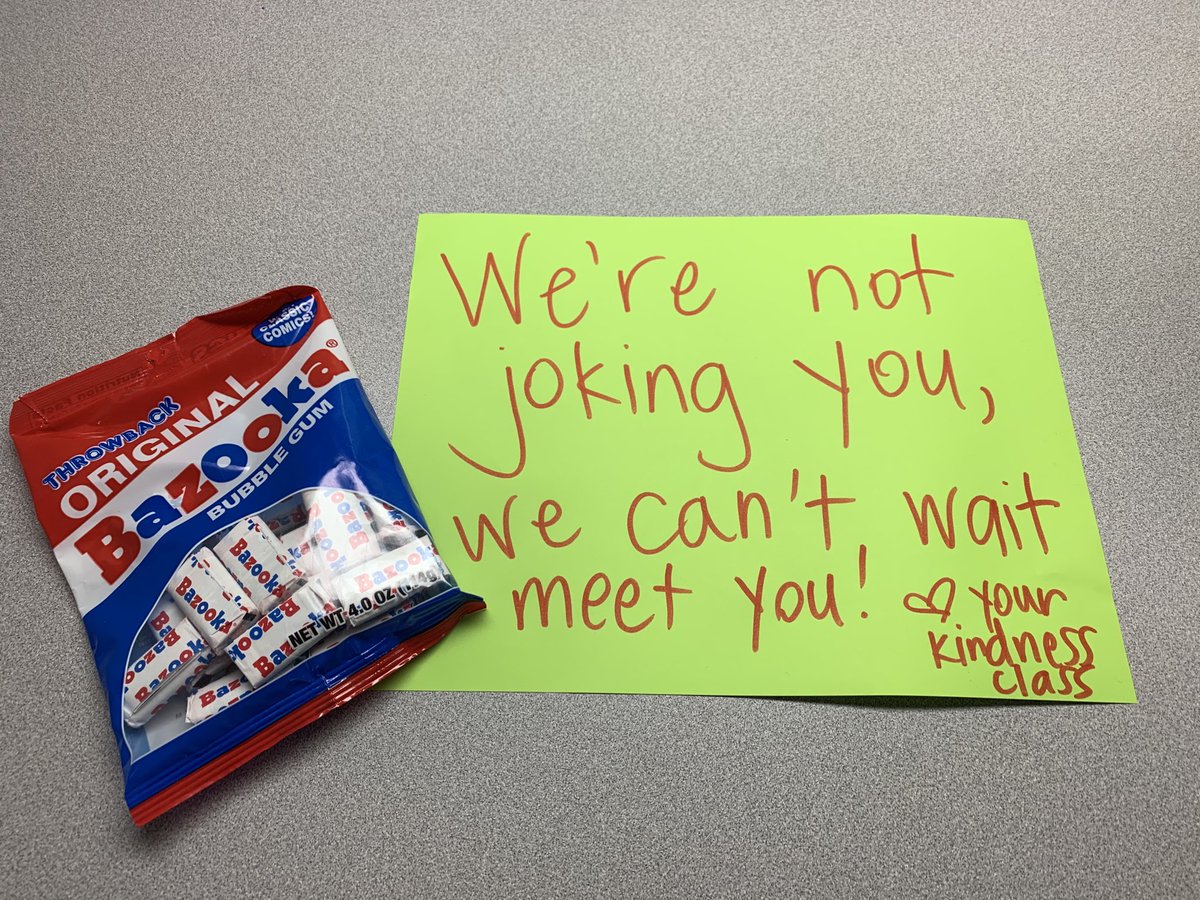 CLASSIC
COMICS!
THROWBACK
ORIGINAL
Bazooka®
BUBBLE GUM
Bazooka
Bazooka
Bazooka
Bazooka
NET WT 4.0 OZ
We're not
joking you,
we can't wait
meet you!
♡ your
kindness
class